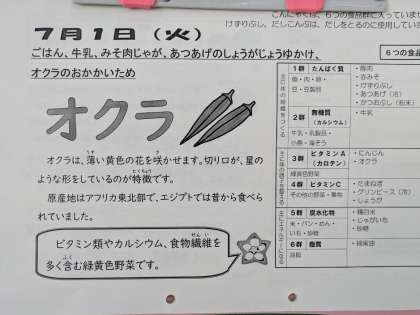 こんにゃくは、6つの食品群に入っていませ
けずりぶし、だしこんぶは、だしをとるのに使用してい
7月1日(火)
ごはん、牛乳、みそ肉じゃが、あつあげのしょうがじょうゆかけ、
オクラのおかかいため
6つの食品
オクラ
オクラは、薄い黄色の花を咲かせます。切り口が、星の
ような形をしているのが特徴です。
原産地はアフリカ東北部で、エジプトでは昔から食べら
れていました。
ビタミン類やカルシウム、食物繊維を
多く含む緑黄色野菜です。
1群 たんぱく質
魚・肉・卵・
豆・豆製品
・豚肉
・赤みそ
・けずりぶし
・あつあげ(冷)
・かつおぶし(粉末)
2群 無機質
(カルシウム)
牛乳・乳製品・
小魚・海そう
・牛乳
3群 ビタミンA
(カロテン)
緑黄色野菜
・にんじん
・オクラ
4群 ビタミンC
その他の野菜・果物
・たまねぎ
・グリンピース(冷)
・しょうが
5群 炭水化物
米・パン・めん・
いも・砂糖
・精白米
・じゃがいも
・砂糖
6群 脂質
油脂